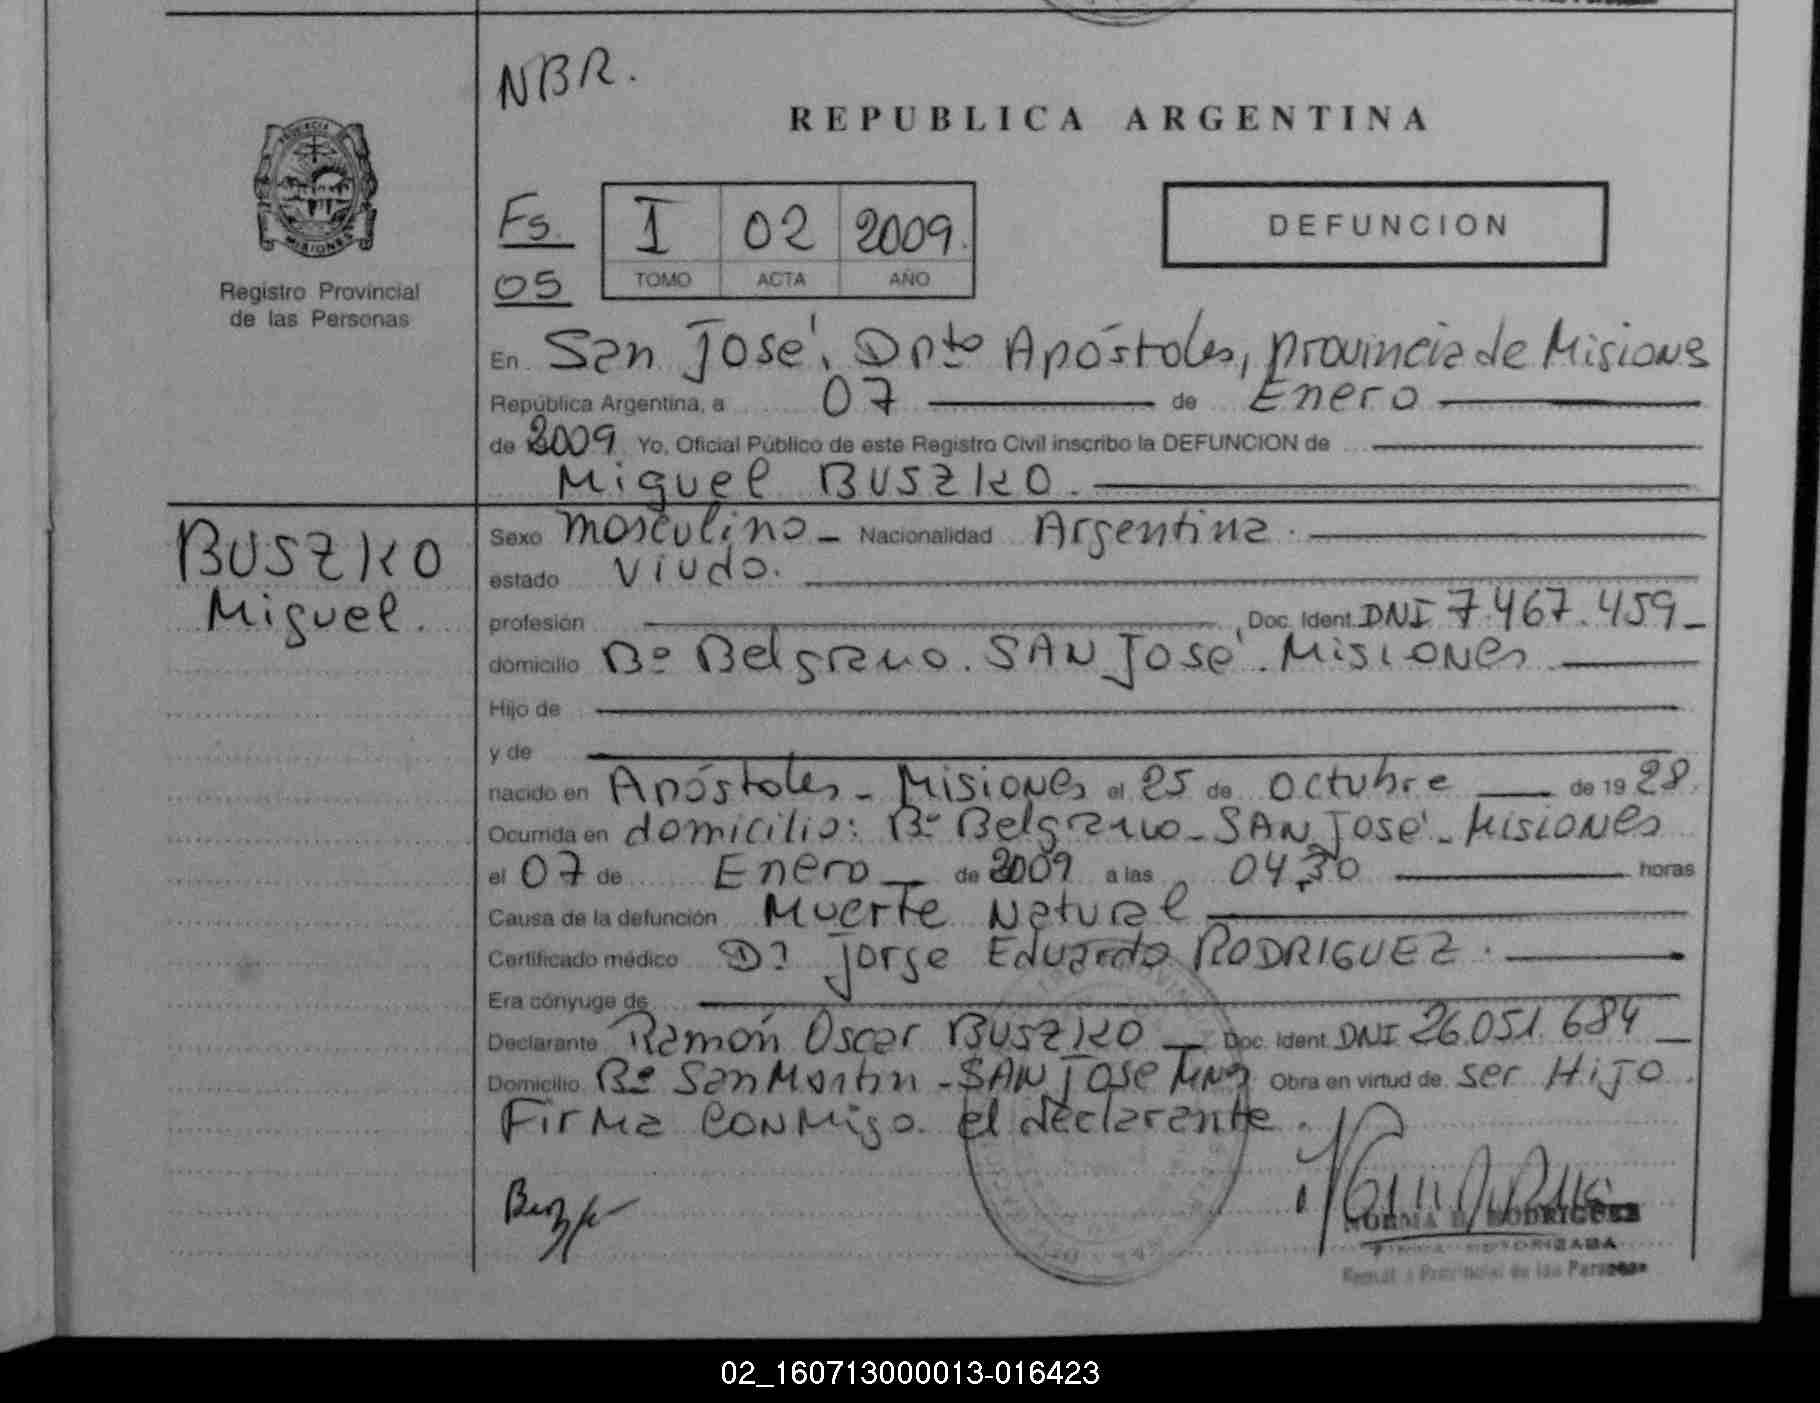 NBR.
REPUBLICA ARGENTINA
PROVINCIA DE
MISIONES
Registro Provincial
de las Personas
Fs. 05
I 02 2009.
TOMO ACTA AÑO
DEFUNCION
En San José, Dpto Apóstoles, provincia de Misiones
República Argentina, a 07 de Enero
de 2009 Yo, Oficial Público de este Registro Civil inscribo la DEFUNCION de
Miguel BUSZKO.
BUSZKO
Miguel.
Sexo masculino - Nacionalidad Argentina.
estado Viudo.
profesión , Doc. Ident. DNI 7.467.459_
domicilio Bº Belgrano. SAN José. Misiones
Hijo de
y de
nacido en Apóstoles - Misiones el 25 de Octubre de 19 28.
Ocurrida en domicilio: Bº Belgrano - SAN José - Misiones
el 07 de Enero de 2009 a las 04,30 horas
Causa de la defunción Muerte Natural
Certificado médico Dr Jorge Eduardo RODRIGUEZ.
Era cónyuge de
Declarante Ramón Oscar BUSZKO Doc. Ident. DNI 26.051.684
Domicilio Bº San Martin - SAN JOSE Mnes Obra en virtud de ser Hijo.
Firma conmigo el declarante.
NORMA B. RODRIGUEZ
FIRMA AUTORIZADA
Registro Provincial de las Personas
02_160713000013-016423